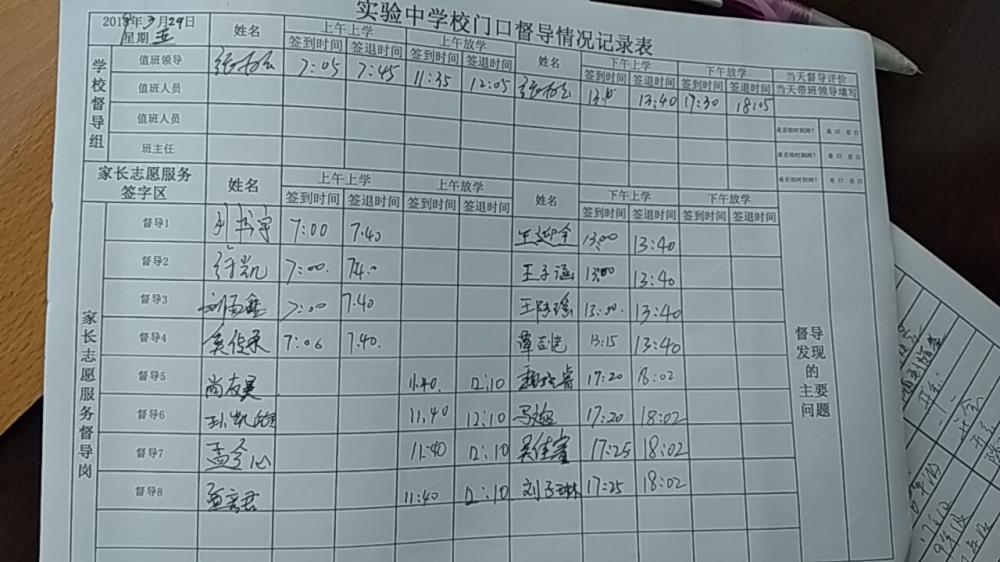 实验中学校门口督导情况记录表
2018年3月29日
星期五
姓名 上午上学 上午放学 姓名 下午上学 下午放学 当天督导评价
签到时间 签退时间 签到时间 签退时间 签到时间 签退时间 签到时间 签退时间 当天带班领导填写
学校督导组
值班领导 7:05 7:45 11:35 12:05 13:40 17:30 18:05
值班人员
值班人员 是否按时到岗? 是 口 否 口
班主任 是否按时到岗? 是 口 否 口
是否按时到岗? 是 口 否 口
家长志愿服务签字区 姓名 上午上学 上午放学 姓名 下午上学 下午放学
签到时间 签退时间 签到时间 签退时间 签到时间 签退时间 签到时间 签退时间
家长志愿服务督导岗
督导1 7:00 7:40 13:00 13:40
督导2 徐凯 7:00 7:40 王子涵 13:00 13:40
督导3 7:00 7:40 13:00 13:40
督导4 7:06 7:40 13:15 13:40
督导5 11:40 12:10 17:20 18:02
督导6 11:40 12:10 17:20 18:02
督导7 11:40 12:10 17:25 18:02
督导8 11:40 12:10 17:25 18:02
督导发现的主要问题